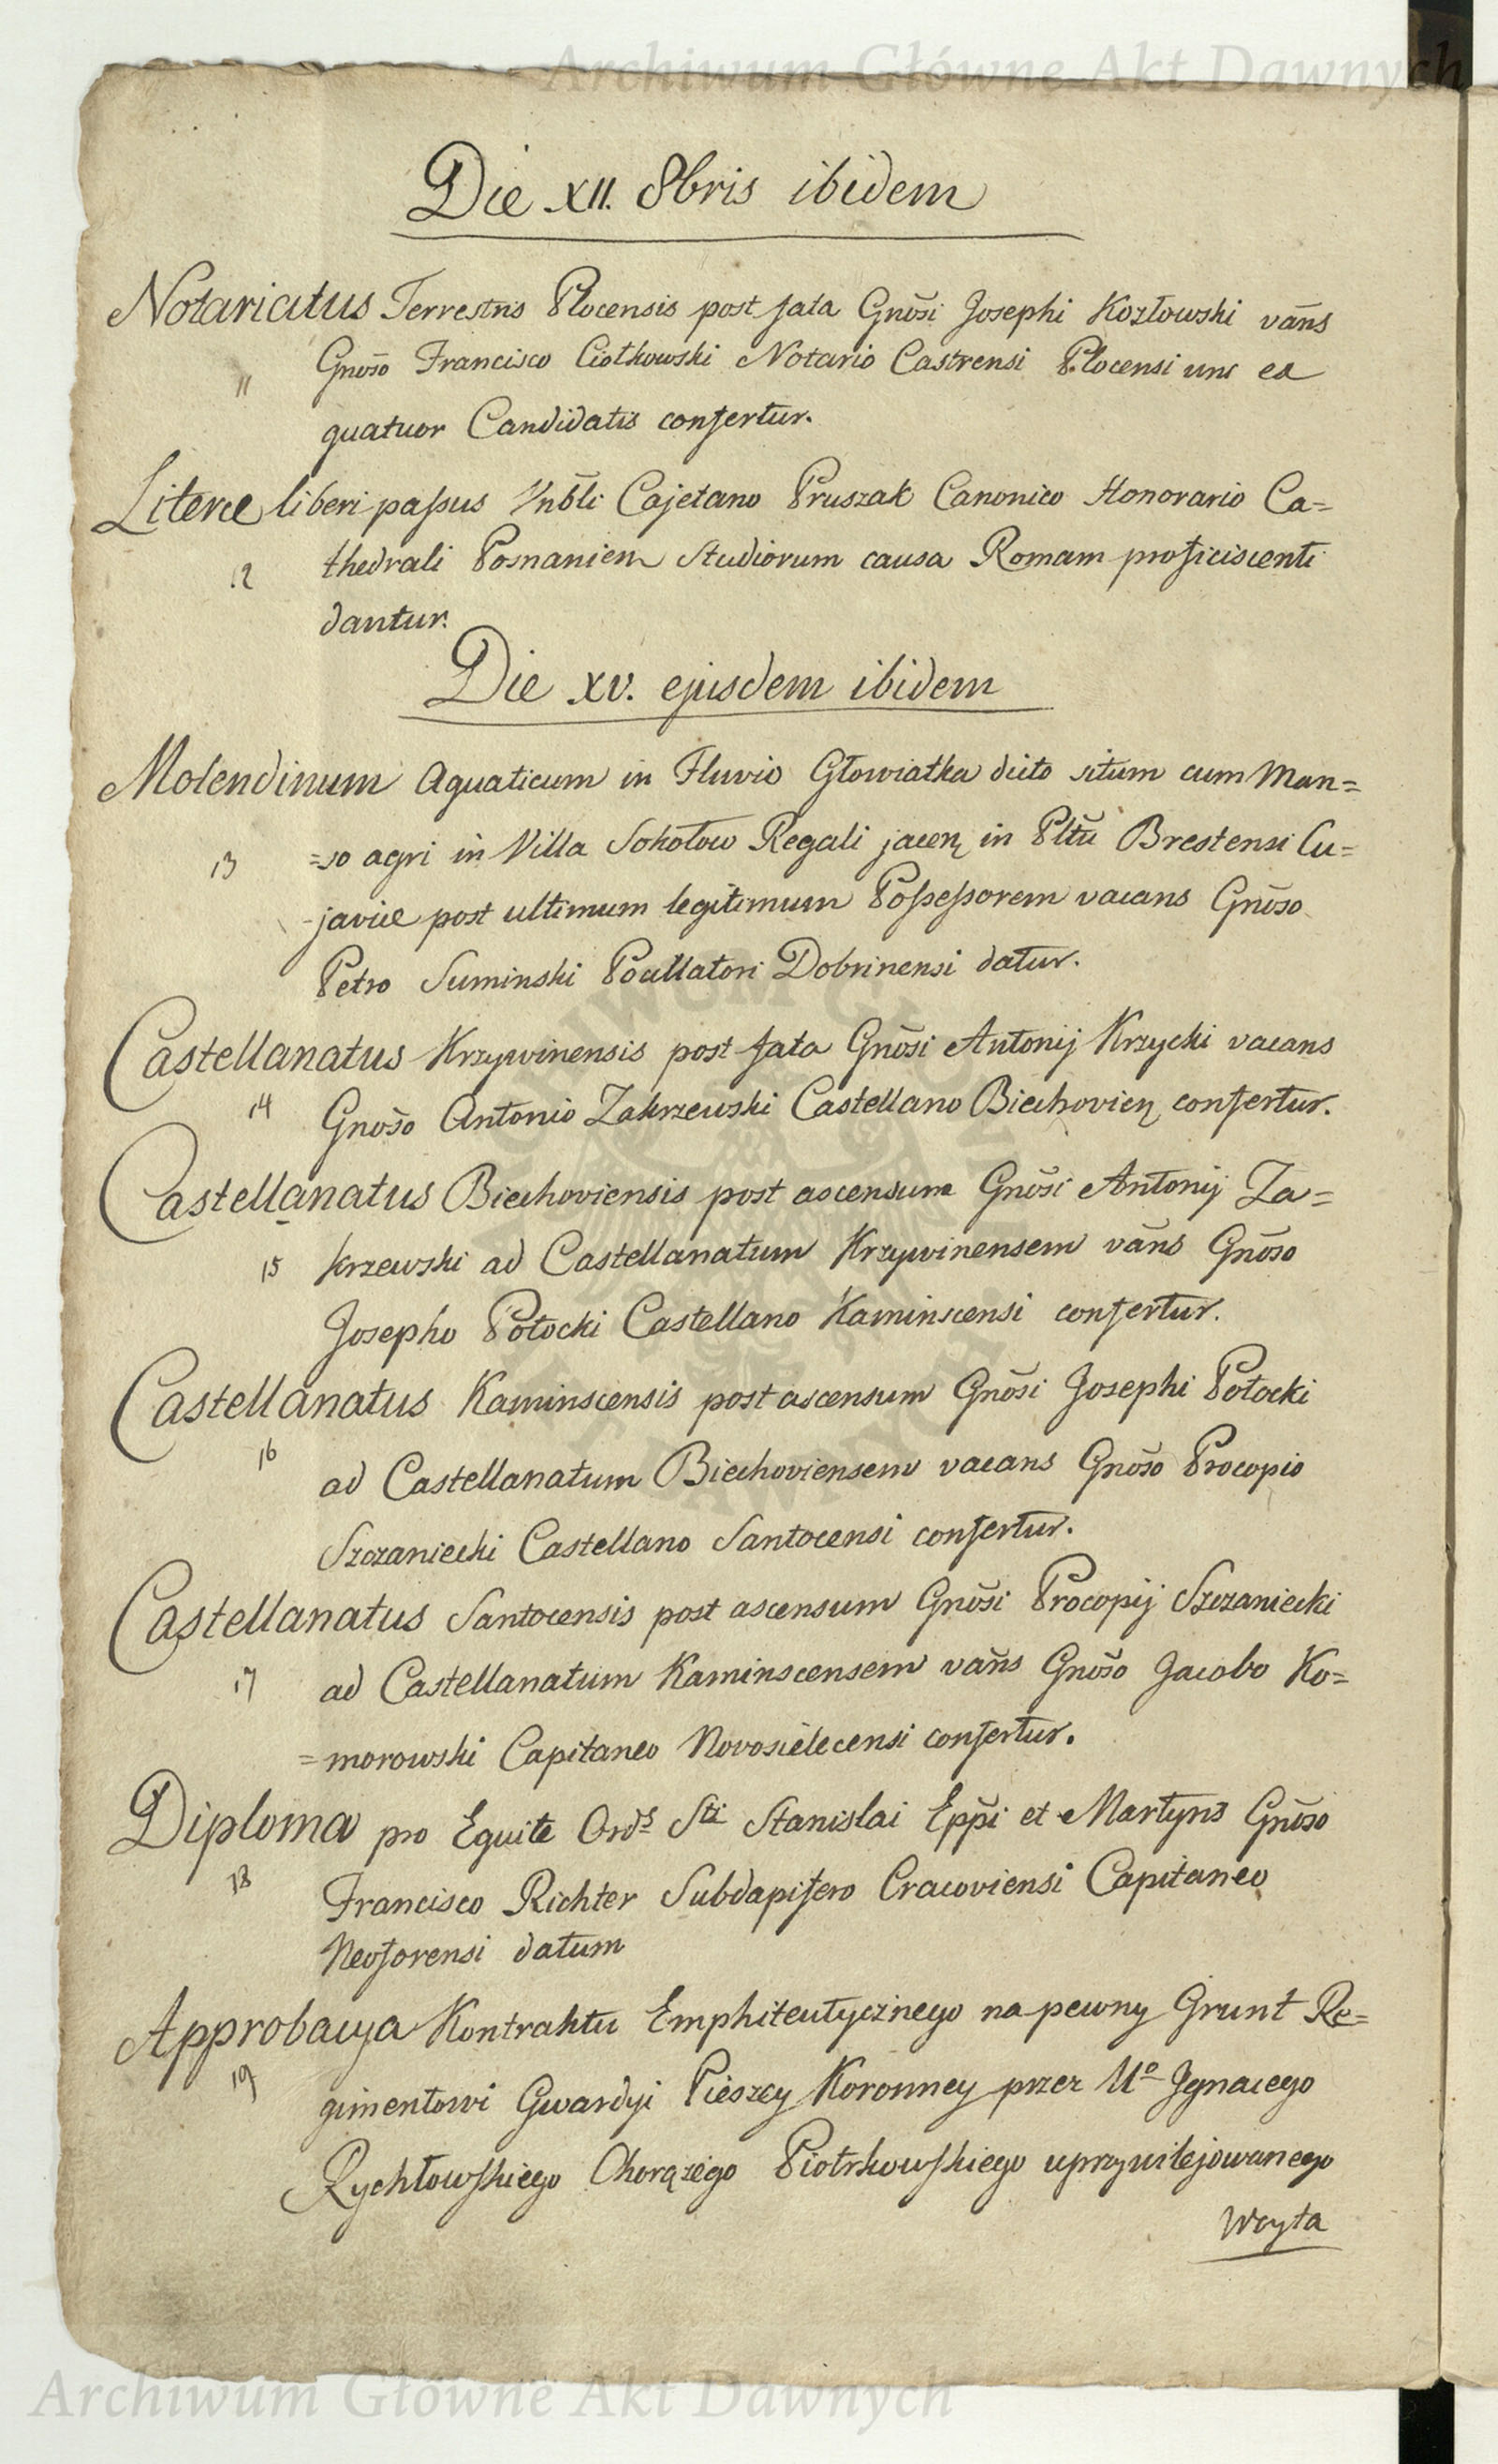 Archiwum Główne Akt Dawnych
Die XII. 8bris ibidem
Notariatus Terrestris Plocensis post fata Gnõsi Josephi Kozłowski vãns
11 Gnõso Francisco Ciołkowski Notario Castrensi Plocensi uni ex
quatuor Candidatis confertur.
Literæ liberi passus Vnõli Cajetano Pruszak Canonico Honorario Ca=
12 thedrali Posnanien Studiorum causa Romam proficiscenti
dantur.
Die XV. ejusdem ibidem
Molendinum Aquaticum in Fluvio Głowiatka dicto situm cum Man=
13 =so agri in Villa Sokołow Regali jacen in Pltũ Brestensi Cu=
-javiæ post ultimum legitimum Possessorem vacans Gnõso
Petro Suminski Pocillatori Dobrinensi datur.
Castellanatus Krzywinensis post fata Gnõsi Antonij Krzycki vacans
14 Gnõso Antonio Zakrzewski Castellano Biechovien confertur.
Castellanatus Biechoviensis post ascensum Gnõsi Antonij Za=
15 krzewski ad Castellanatum Krzywinensem vãns Gnõso
Josepho Potocki Castellano Kaminscensi confertur.
Castellanatus Kaminscensis post ascensum Gnõsi Josephi Potocki
16 ad Castellanatum Biechoviensem vacans Gnõso Procopio
Szczaniecki Castellano Santocensi confertur.
Castellanatus Santocensis post ascensum Gnõsi Procopij Szczaniecki
17 ad Castellanatum Kaminscensem vãns Gnõso Jacobo Ko=
=morowski Capitaneo Novosielecensi confertur.
Diploma pro Equite Ords Sti Stanislai Eppi et Martyris Gnõso
18 Francisco Richter Subdapifero Cracoviensi Capitaneo
Neoforensi datum
Approbacya Kontraktu Emphiteutycznego na pewny Grunt Re=
19 gimentowi Gwardyi Pieszey Koronney przez Uo Jgnacego
Rychłowskiego Chorążego Piotrkowskiego uprzywilejowanego
Woyta
Archiwum Główne Akt Dawnych